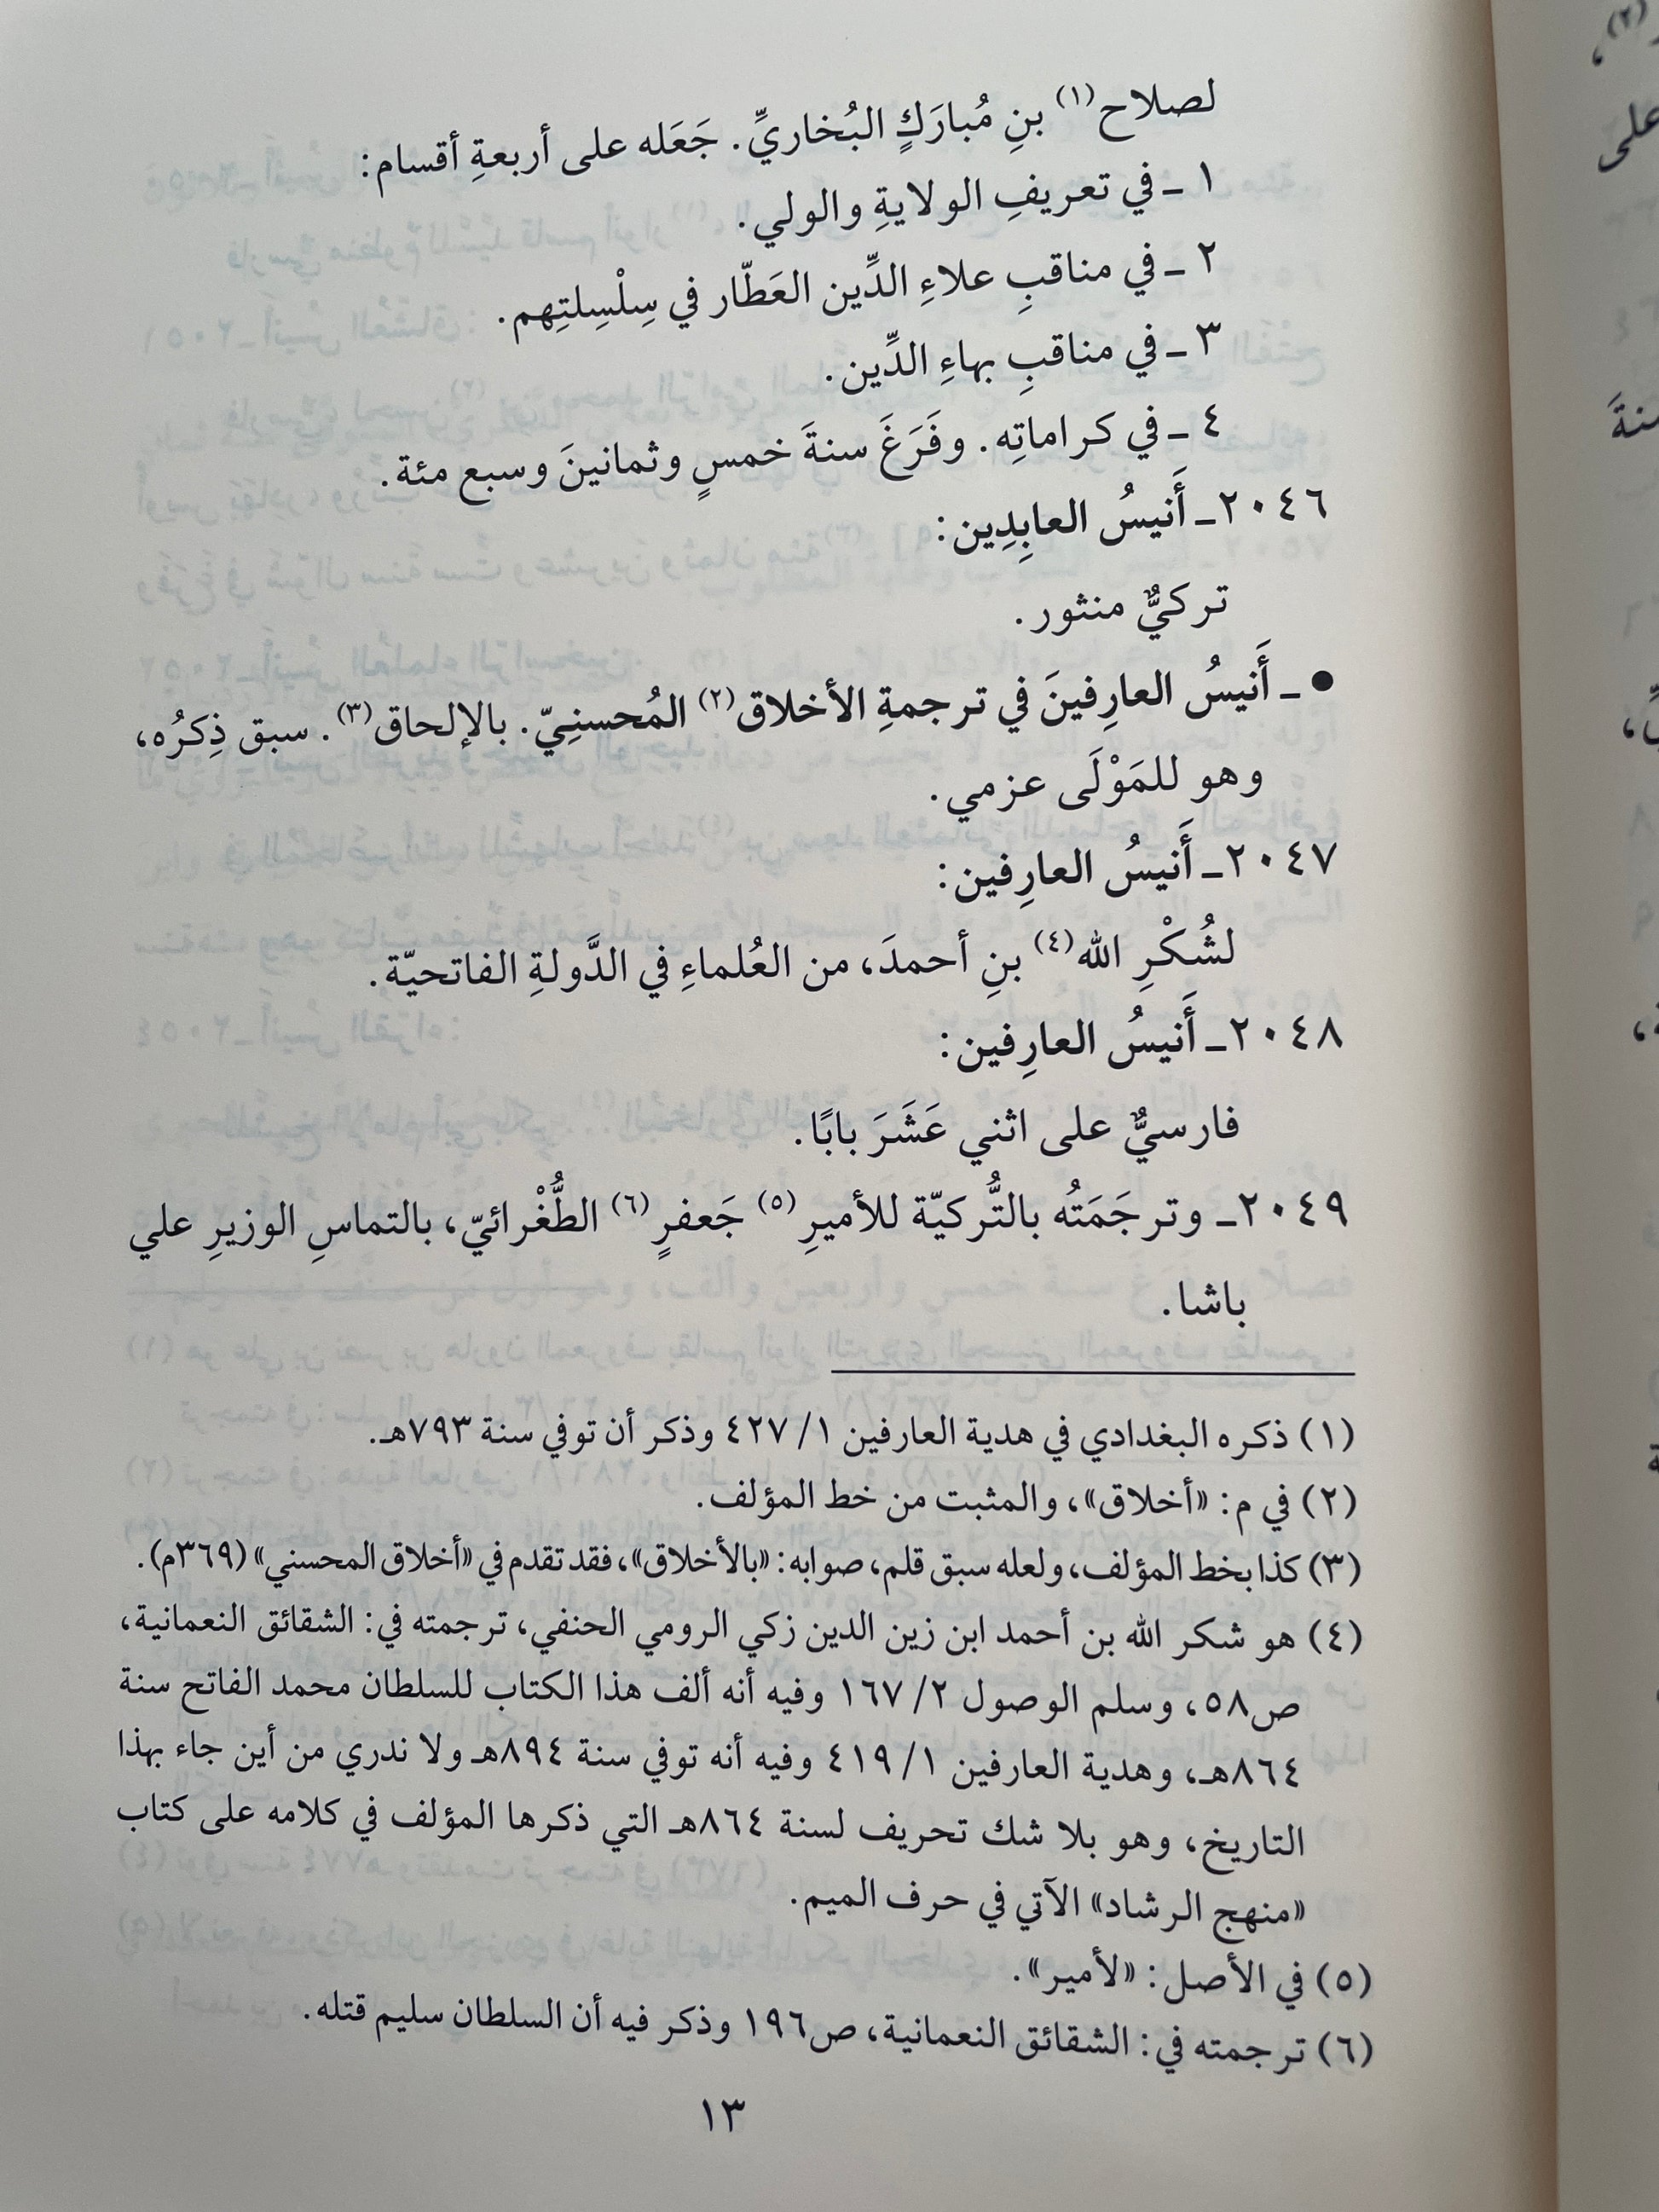 لصلاح(١) بنِ مُبارَكٍ البُخاريِّ. جَعَله على أربعةِ أقسام:
١ ـ في تعريفِ الولايةِ والولي.
٢ ـ في مناقبِ علاءِ الدِّين العَطّار في سِلْسِلتِهم.
٣ ـ في مناقبِ بهاءِ الدِّين.
٤ ـ في كراماتِه. وفَرَغَ سنةَ خمسٍ وثمانينَ وسبع مئة.
٢٠٤٦ـ أَنيسُ العابِدِين:
تركيٌّ منثور.
● ـ أَنيسُ العارِفينَ في ترجمةِ الأخلاق(٢) المُحسنِيّ. بالإلحاق(٣). سبق ذِكرُه،
وهو للمَوْلَى عزمي.
٢٠٤٧ـ أَنيسُ العارِفين:
لشُكْرِ الله(٤) بنِ أحمدَ، من العُلماءِ في الدَّولةِ الفاتحيّة.
٢٠٤٨ـ أَنيسُ العارِفين:
فارسيٌّ على اثني عَشَرَ بابًا.
٢٠٤٩ـ وترجَمَتُه بالتُّركيّة للأميرِ(٥) جَعفرٍ(٦) الطُّغْرائيّ، بالتماسِ الوزيرِ علي
باشا.
(١) ذكره البغدادي في هدية العارفين ١/ ٤٢٧ وذكر أن توفي سنة ٧٩٣هـ.
(٢) في م: «أخلاق»، والمثبت من خط المؤلف.
(٣) كذا بخط المؤلف، ولعله سبق قلم، صوابه: «بالأخلاق»، فقد تقدم في «أخلاق المحسني» (٣٦٩م).
(٤) هو شكر الله بن أحمد ابن زين الدين زكي الرومي الحنفي، ترجمته في: الشقائق النعمانية،
ص٥٨، وسلم الوصول ٢/ ١٦٧ وفيه أنه ألف هذا الكتاب للسلطان محمد الفاتح سنة
٨٦٤هـ، وهدية العارفين ١/ ٤١٩ وفيه أنه توفي سنة ٨٩٤هـ ولا ندري من أين جاء بهذا
التاريخ، وهو بلا شك تحريف لسنة ٨٦٤هـ التي ذكرها المؤلف في كلامه على كتاب
«منهج الرشاد» الآتي في حرف الميم.
(٥) في الأصل: «لأمير».
(٦) ترجمته في: الشقائق النعمانية، ص١٩٦ وذكر فيه أن السلطان سليم قتله.
١٣